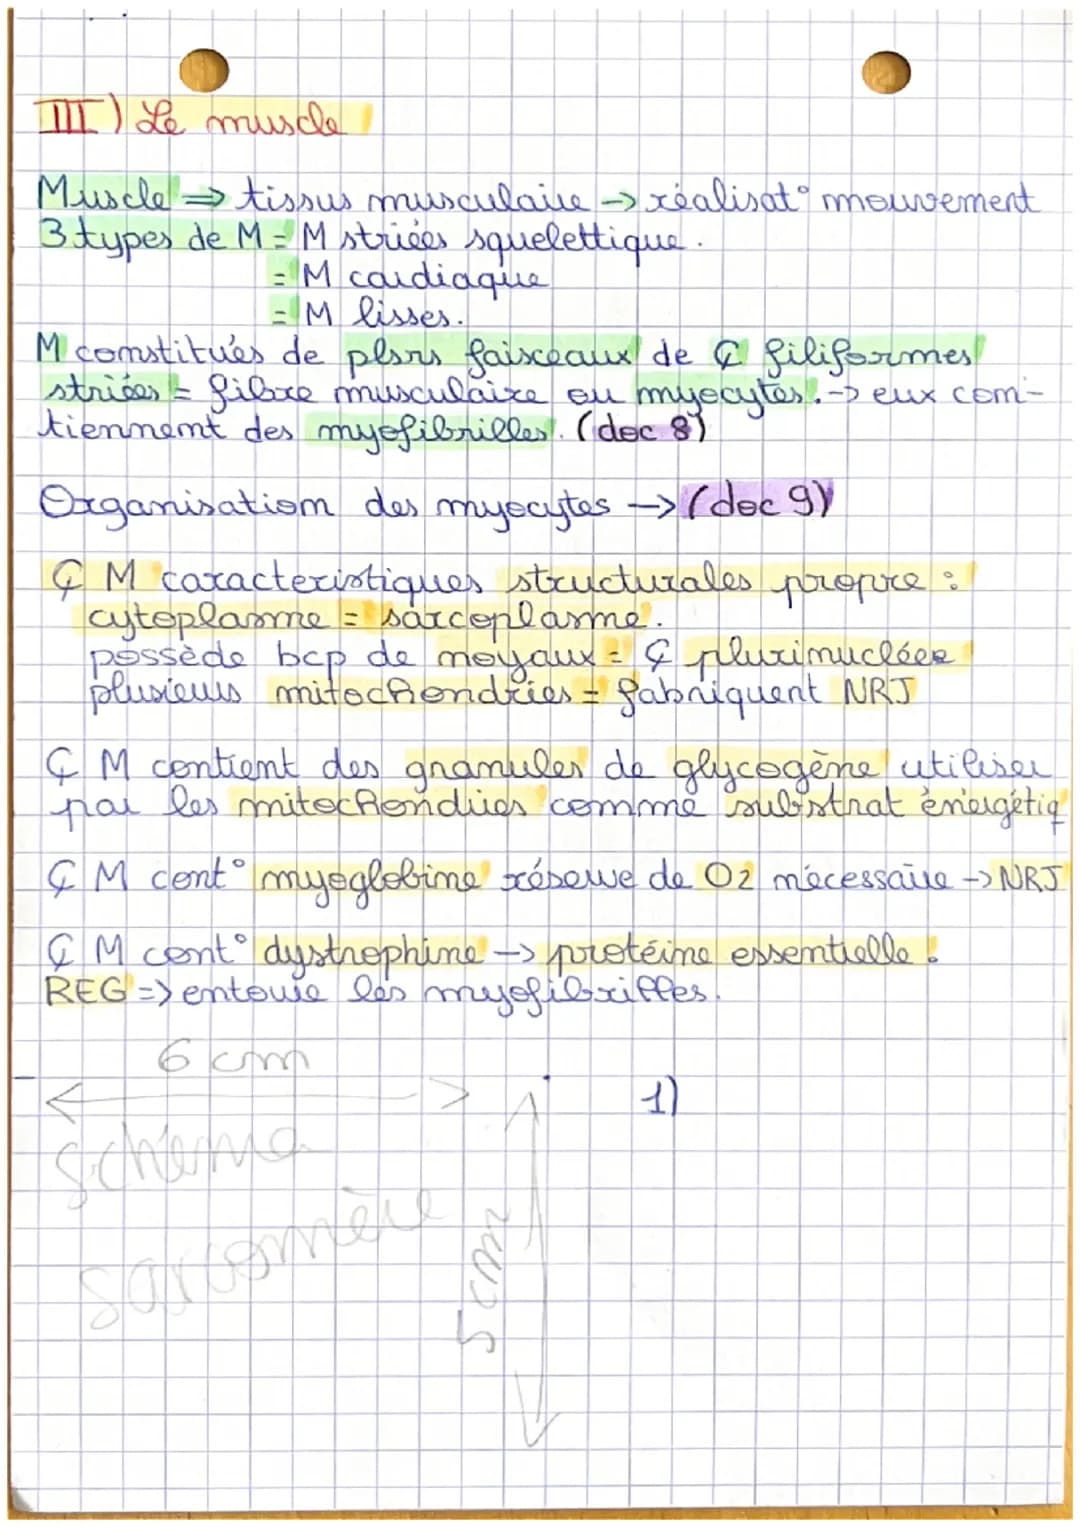 III) Le muscle
Muscle => tissus musculaire -> réalisat° mouvement
3 types de M = M striées squelettique.
= M cardiaque
= M lisses.
M constitués de plsrs faisceaux de ₵ filiformes
striées = fibre musculaire ou myocytes. -> eux con-
tiennent des myofibrilles. (doc 8)
Organisation des myocytes -> (doc 9)
₵ M caracteristiques structurales propre :
cytoplasme = sarcoplasme.
possède bcp de noyaux = ₵ plurinucléée
plusieurs mitochondries = fabriquent NRJ
₵ M contient des granules de glycogène utiliser
par les mitochondries comme substrat énergétiq
₵ M cont° myoglobine réserve de O2 nécessaire -> NRJ
₵ M cont° dystrophine -> protéine essentielle.
REG => entoure les myofibrilles.
6 cm
1)
schéma
sarcomère
5 cm